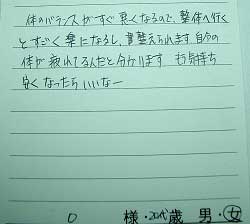 体のバランスがすぐ悪くなるので、整体へ行く
とすごく楽になるし、調整えられます 自分の
体が疲れてるんだと分かります もう気持ち
安くなったらいいなー
O 様・20代 歳 男・女